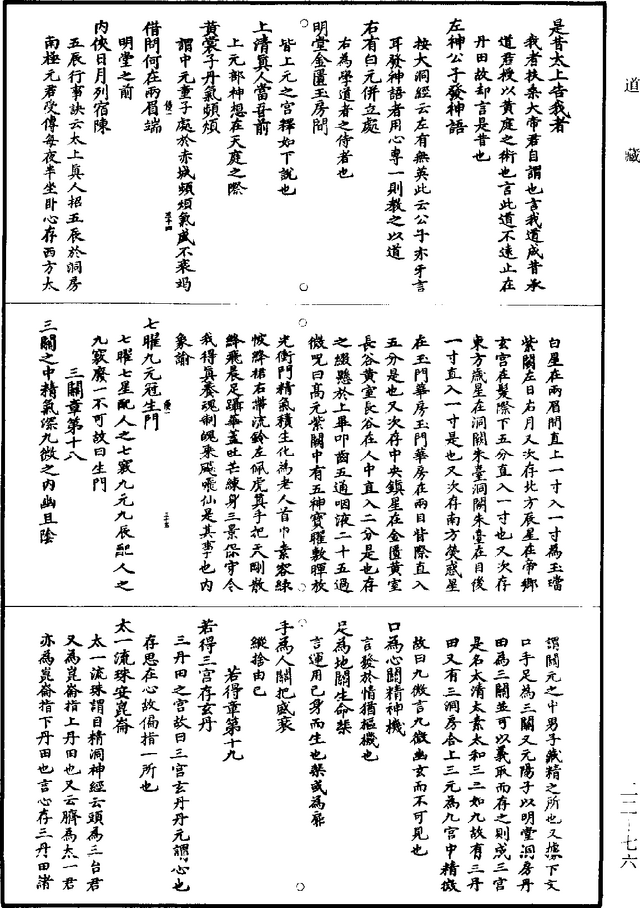 道藏
是昔太上告我者
我者扶桑大帝君自謂也言我道成昔承
道君授以黃庭之術也言此道不遠止在
丹田故却言是昔也
左神公子發神語
按大洞經云左有無英此云公子亦牙言
耳發神語者用心專一則教之以道
右有白元併立處
右為學道者之侍者也
明堂金匱玉房間
皆上元之宮釋如下說也
上清真人當吾前
上元部神想在天庭之際
黃裳子丹氣頻煩
謂中元童子處於赤城頻煩氣盛不衰竭
借問何在兩眉端
明堂之前
內俠日月列宿陳
五辰行事訣云太上真人招五辰於洞房
南極元君受傳每夜半坐卧心存西方太
白星在兩眉間直上一寸入一寸為玉璫
紫闕左日右月又次存北方辰星在帝鄉
玄宮在髮際下五分直入一寸也又次存
東方歲星在洞闕朱臺洞闕朱臺在目後
一寸直入一寸是也又次存南方熒惑星
在玉門華房玉門華房在兩目眥際直入
五分是也又次存中央鎮星在金匱黃室
長谷黃室長谷在人中直入二分是也存
之綴懸於上畢叩齒五通咽液二十五過
微呪曰高元紫闕中有五神寶曜敷暉放
光衝門精氣積生化為老人首巾素容綠
帔絳裙右帶流鈴左佩虎真手把天剛散
絳飛晨足躡華蓋吐芒練身三景保守令
我得真養魂制魄乘飇飛仙是其事也內
象諭
七曜九元冠生門
七曜七星配人之七竅九元九辰配人之
九竅廢一不可故曰生門
三關章第十八
三關之中精氣深九微之內幽且陰
謂關元之中男子藏精之所也又據下文
口手足為三關又元陽子以明堂洞房丹
田為三關並可以義取而存之則成三宮
是名太清太素太和三三如九故有三丹
田又有三洞房合上三元為九宮中精微
故曰九微言九微幽玄而不可見也
口為心關精神機
言發於情猶樞機也
足為地關生命棐
言運用已身而生也棐或為扉
手為人關把盛衰
縱捨由已
若得章第十九
若得三宮存玄丹
三丹田之宮故曰三宮玄丹丹元謂心也
存思在心故偏指一所也
太一流珠安崑崙
太一流珠謂目精洞神經云頭為三台君
又為崑崙指上丹田也又云臍為太一君
亦為崑崙指下丹田也言心存三丹田諸
二二—七六